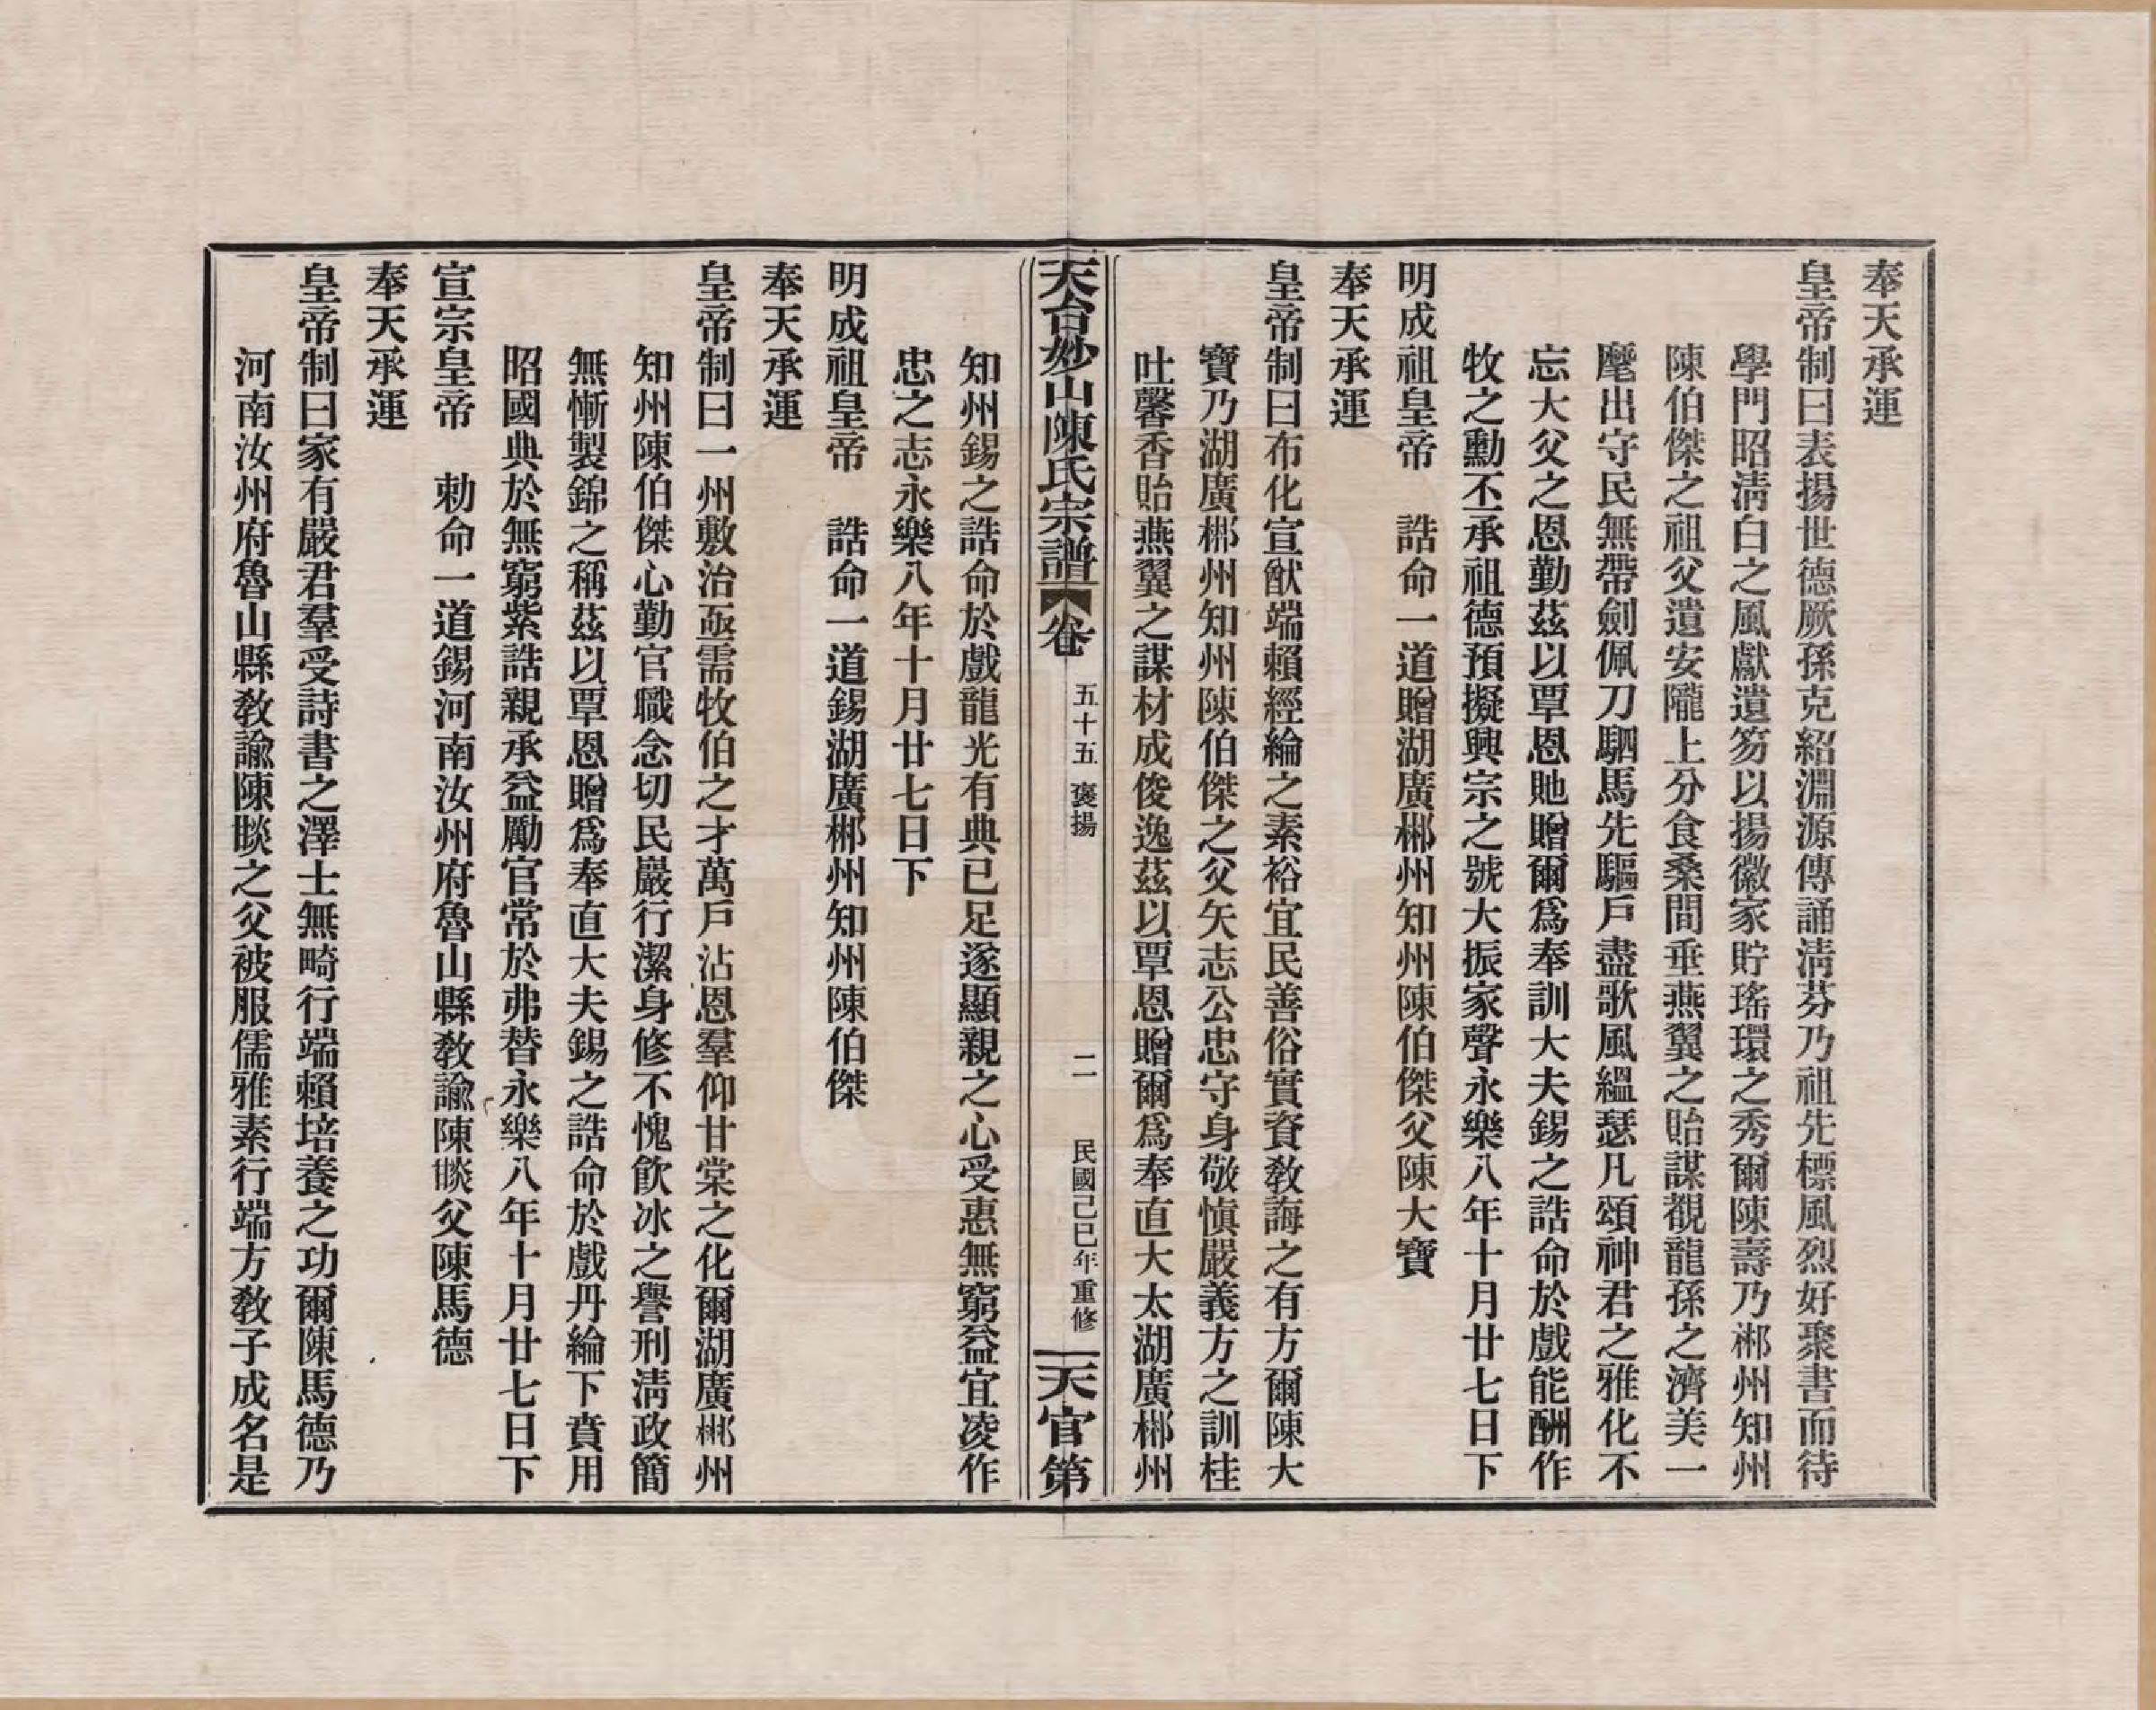 奉天承運
皇帝制曰表揚世德厥孫克紹淵源傳誦淸芬乃祖先標風烈好聚書而待
學門昭淸白之風獻遺笏以揚徽家貯瑤環之秀爾陳壽乃郴州知州
陳伯傑之祖父遺安隴上分食桑間垂燕翼之貽謀覩龍孫之濟美一
麾出守民無帶劍佩刀駟馬先驅戶盡歌風縕瑟凡頌神君之雅化不
忘大父之恩勤茲以覃恩貤贈爾爲奉訓大夫錫之誥命於戲能酬作
牧之勳丕承祖德預擬興宗之號大振家聲永樂八年十月廿七日下
明成祖皇帝　誥命一道贈湖廣郴州知州陳伯傑父陳大寶
奉天承運
皇帝制曰布化宣猷端賴經綸之素裕宜民善俗實資敎誨之有方爾陳大
寶乃湖廣郴州知州陳伯傑之父矢志公忠守身敬愼嚴義方之訓桂
吐馨香貽燕翼之謀材成俊逸茲以覃恩贈爾爲奉直大太湖廣郴州
天台妙山陳氏宗譜　卷　五十五　褒揚　二　民國己巳年重修　天官第
知州錫之誥命於戲龍光有典已足遂顯親之心受惠無窮益宜凌作
忠之志永樂八年十月廿七日下
明成祖皇帝　誥命一道錫湖廣郴州知州陳伯傑
奉天承運
皇帝制曰一州敷治亟需牧伯之才萬戶沾恩羣仰甘棠之化爾湖廣郴州
知州陳伯傑心勤官職念切民嚴行潔身修不愧飮冰之譽刑淸政簡
無慚製錦之稱茲以覃恩贈爲奉直大夫錫之誥命於戲丹綸下賁用
昭國典於無窮紫誥親承益勵官常於弗替永樂八年十月廿七日下
宣宗皇帝　勅命一道錫河南汝州府魯山縣敎諭陳睒父陳馬德
奉天承運
皇帝制曰家有嚴君羣受詩書之澤士無畸行端賴培養之功爾陳馬德乃
河南汝州府魯山縣敎諭陳睒之父被服儒雅素行端方敎子成名是